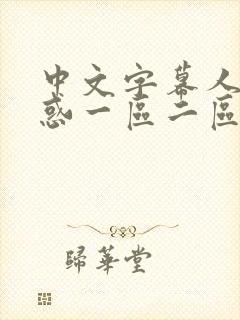 中文字幕人
惑一區二區
歸華堂